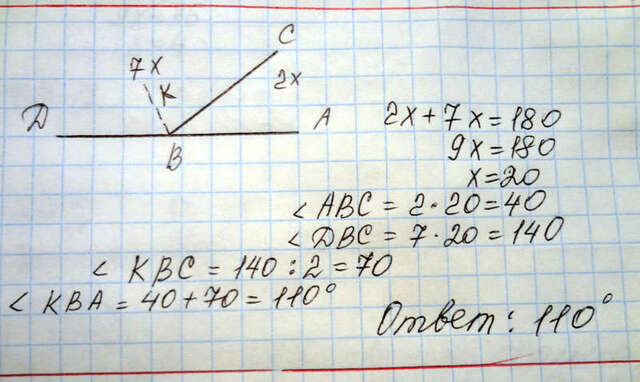 C
7x
K
2x
D
A
B
2x+7x=180
9x=180
x=20
∠ABC = 2·20=40
∠DBC = 7·20=140
∠KBC = 140:2=70
∠KBA = 40+70=110°
Ответ: 110°